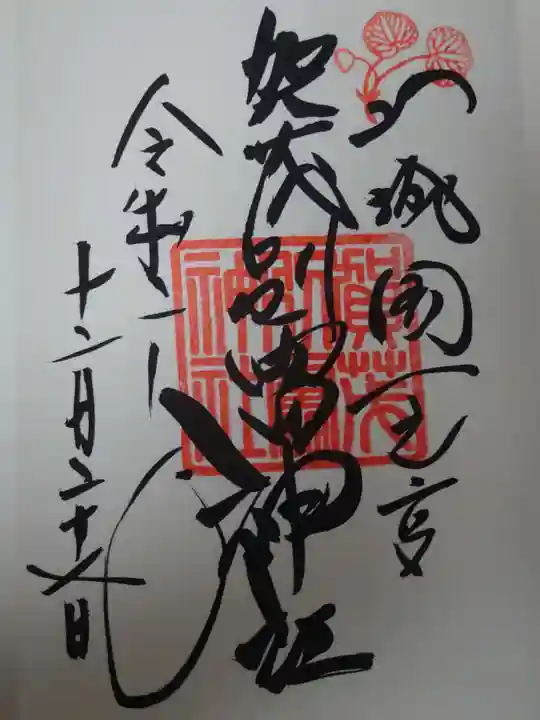 山城国一之宮
賀茂別雷神社
令和二年
十二月二十日
賀茂
別雷
神社